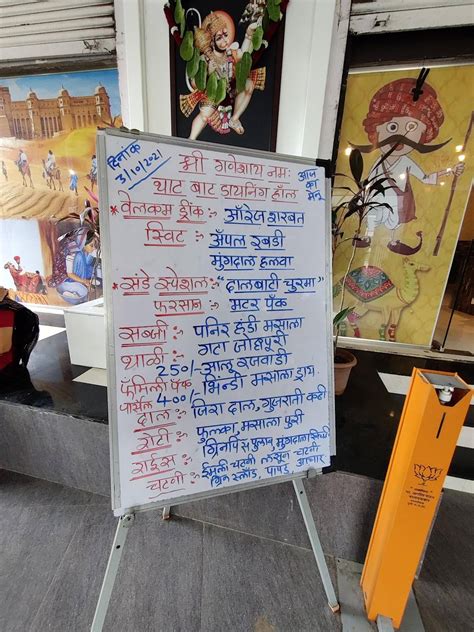 दिनांक
3/10/2021
श्री गणेशाय नमः
आज का मेनू
थाट बाट डायनिंग हॉल
*वेलकम ड्रींक:- ऑरेंज शरबत
स्विट :- ॲपल रबडी
मुंगदाल हलवा
*संडे स्पेशल:- "दालबाटी चुरमा"
फरसान :- मटर पॅक
सब्जी :- पनिर हंडी मसाला
थाळी :- गटा जोधपुरी
250/- आलू रजवाडी
फॅमिली पॅक पार्सल 400/- भिन्डी मसाला ड्राय
दाल :- जिरा दाल, गुजराती कढी
रोटी :- फुलका, मसाला पुरी
राईस :- ग्रिनपिस पुलाव, मुंगदाल खिचडी
चटणी :- ईमली चटणी लसून चटणी
ग्रिन सॅलाड, पापड, आचार